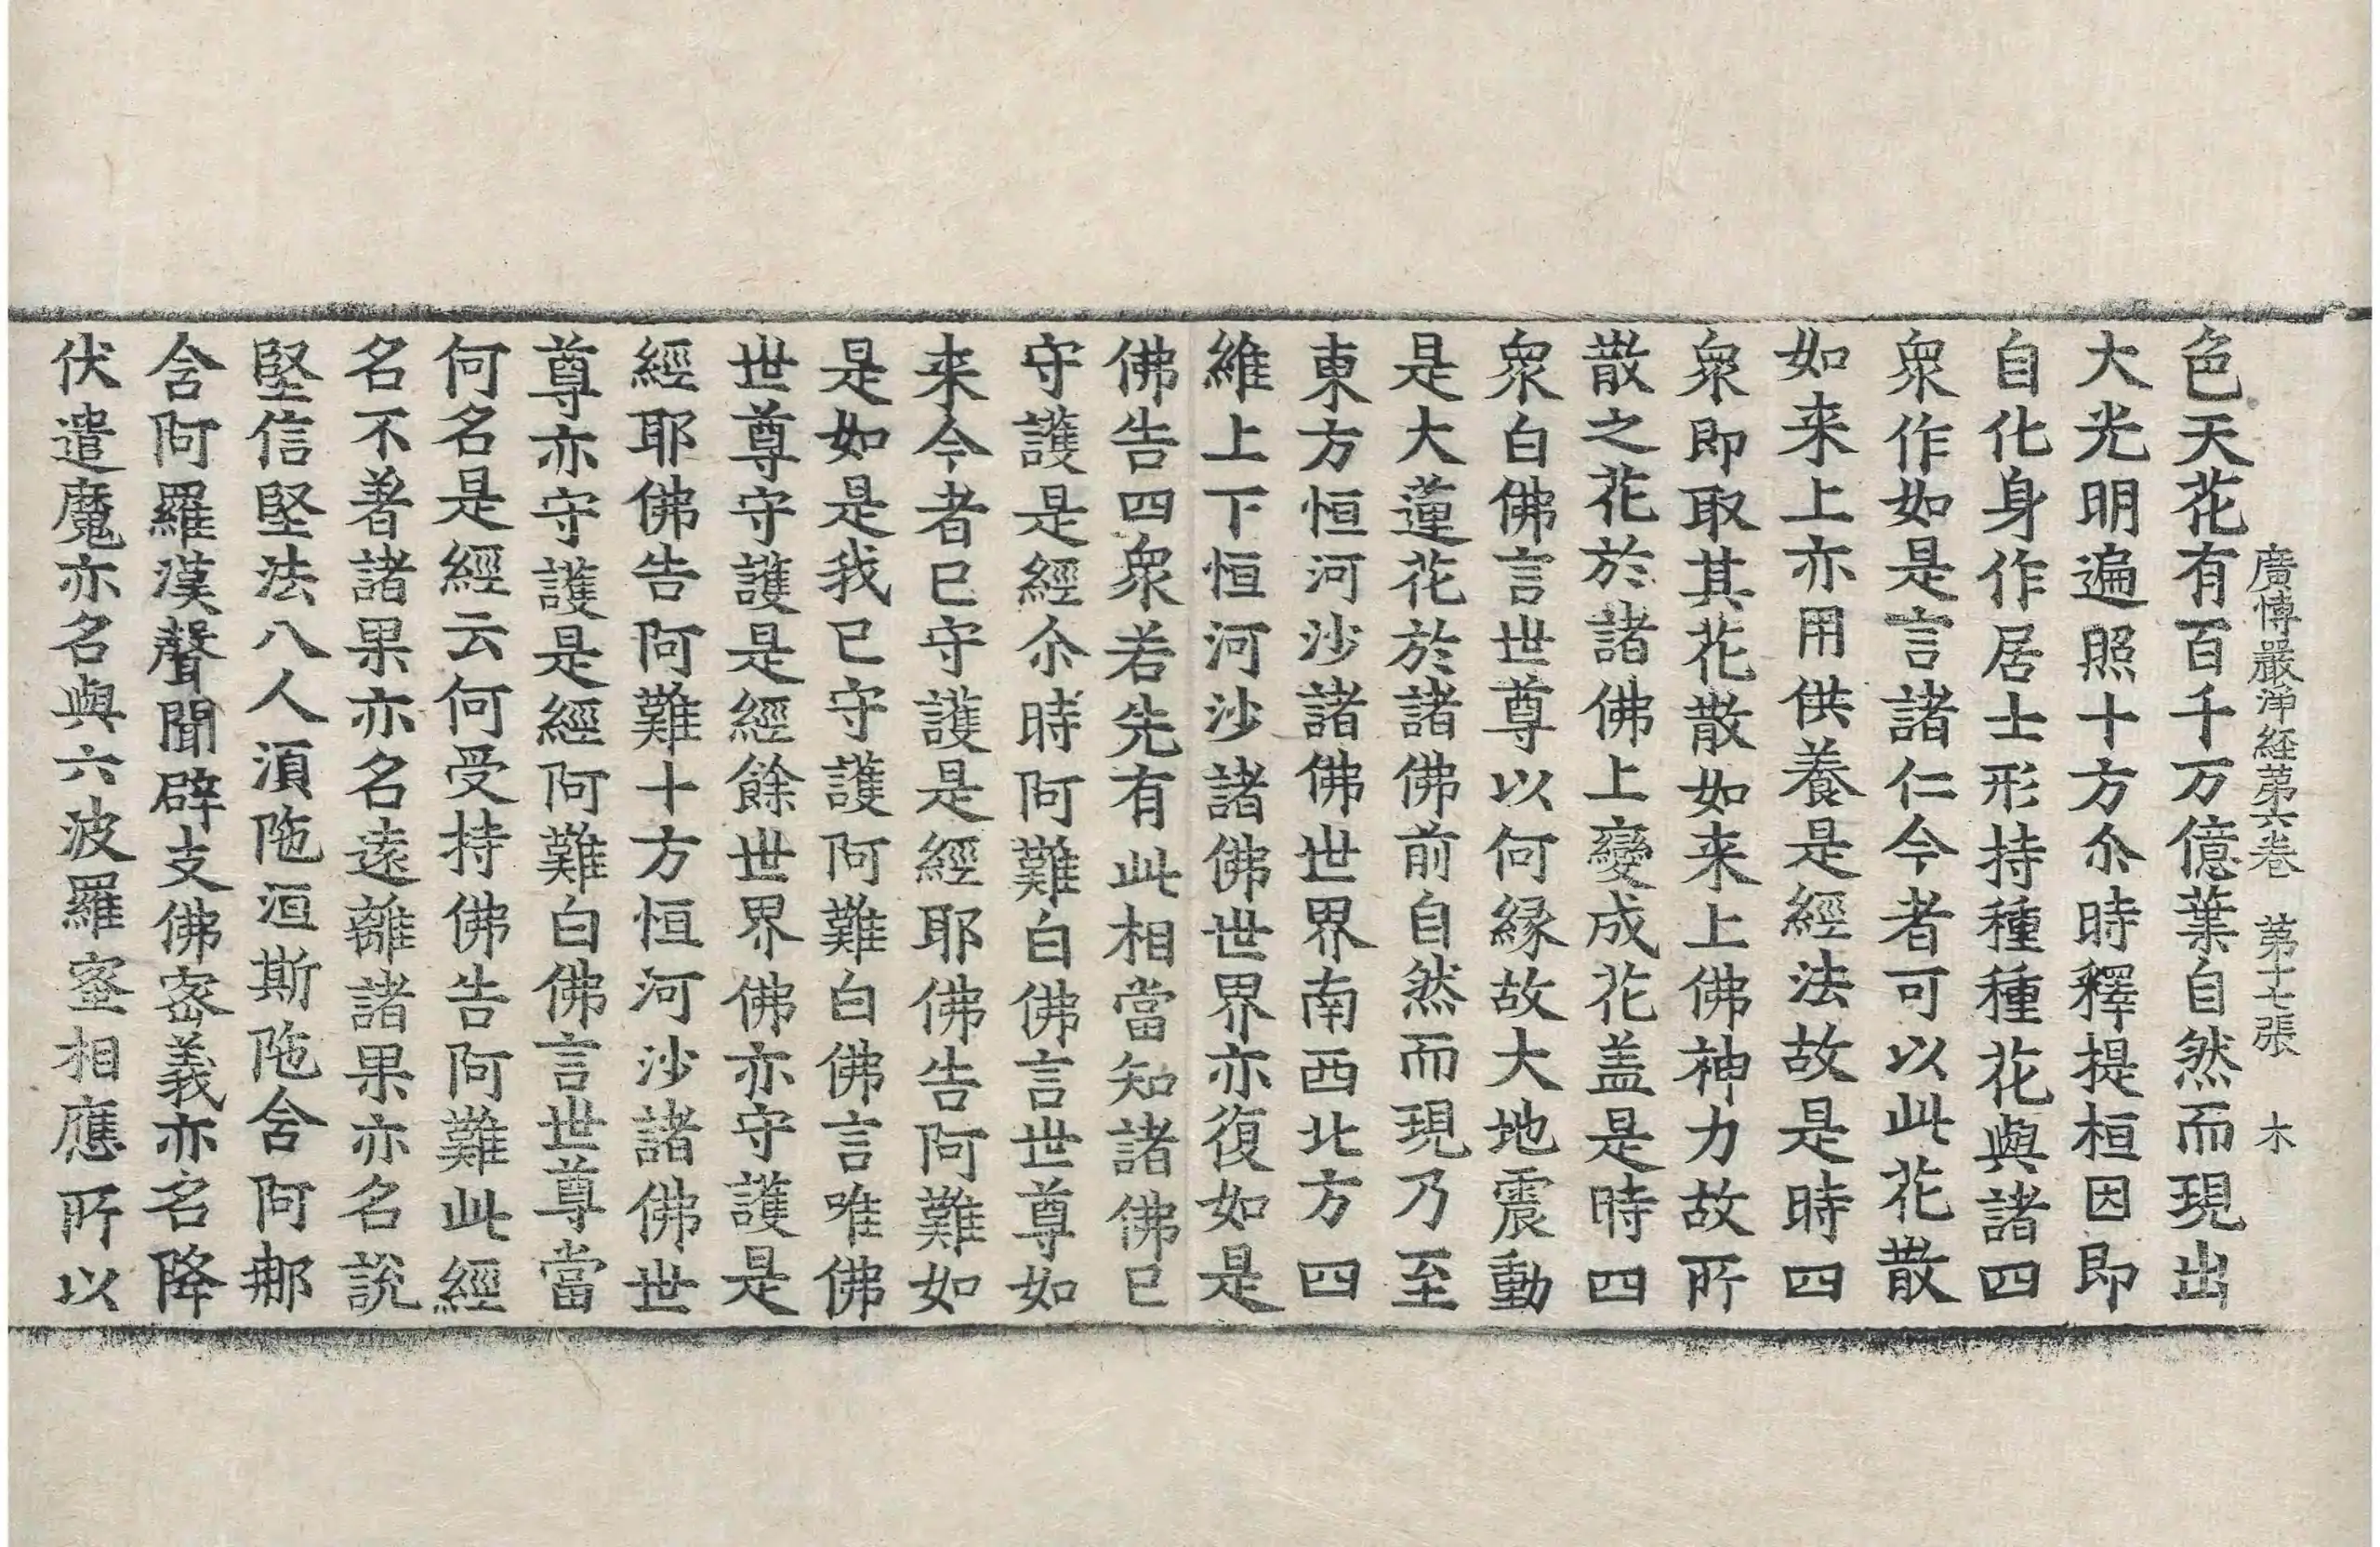 廣博嚴淨経苐六卷 苐十七張 木
色天花有百千万億葉自然而現出
大光明遍照十方尒時釋提桓因即
自化身作居士形持種種花與諸四
衆作如是言諸仁今者可以此花散
如来上亦用供養是經法故是時四
衆即取其花散如来上佛神力故所
散之花於諸佛上變成花盖是時四
衆白佛言世尊以何縁故大地震動
是大蓮花於諸佛前自然而現乃至
東方恒河沙諸佛世界南西北方四
維上下恒河沙諸佛世界亦復如是
佛告四衆若先有此相當知諸佛已
守護是經尒時阿難白佛言世尊如
来今者已守護是經耶佛告阿難如
是如是我已守護阿難白佛言唯佛
世尊守護是經餘世界佛亦守護是
經耶佛告阿難十方恒河沙諸佛世
尊亦守護是經阿難白佛言世尊當
何名是經云何受持佛告阿難此經
名不著諸果亦名遠離諸果亦名說
堅信堅法八人湏陁洹斯陁含阿那
含阿羅漢聲聞辟支佛密義亦名降
伏遣魔亦名與六波羅蜜相應所以